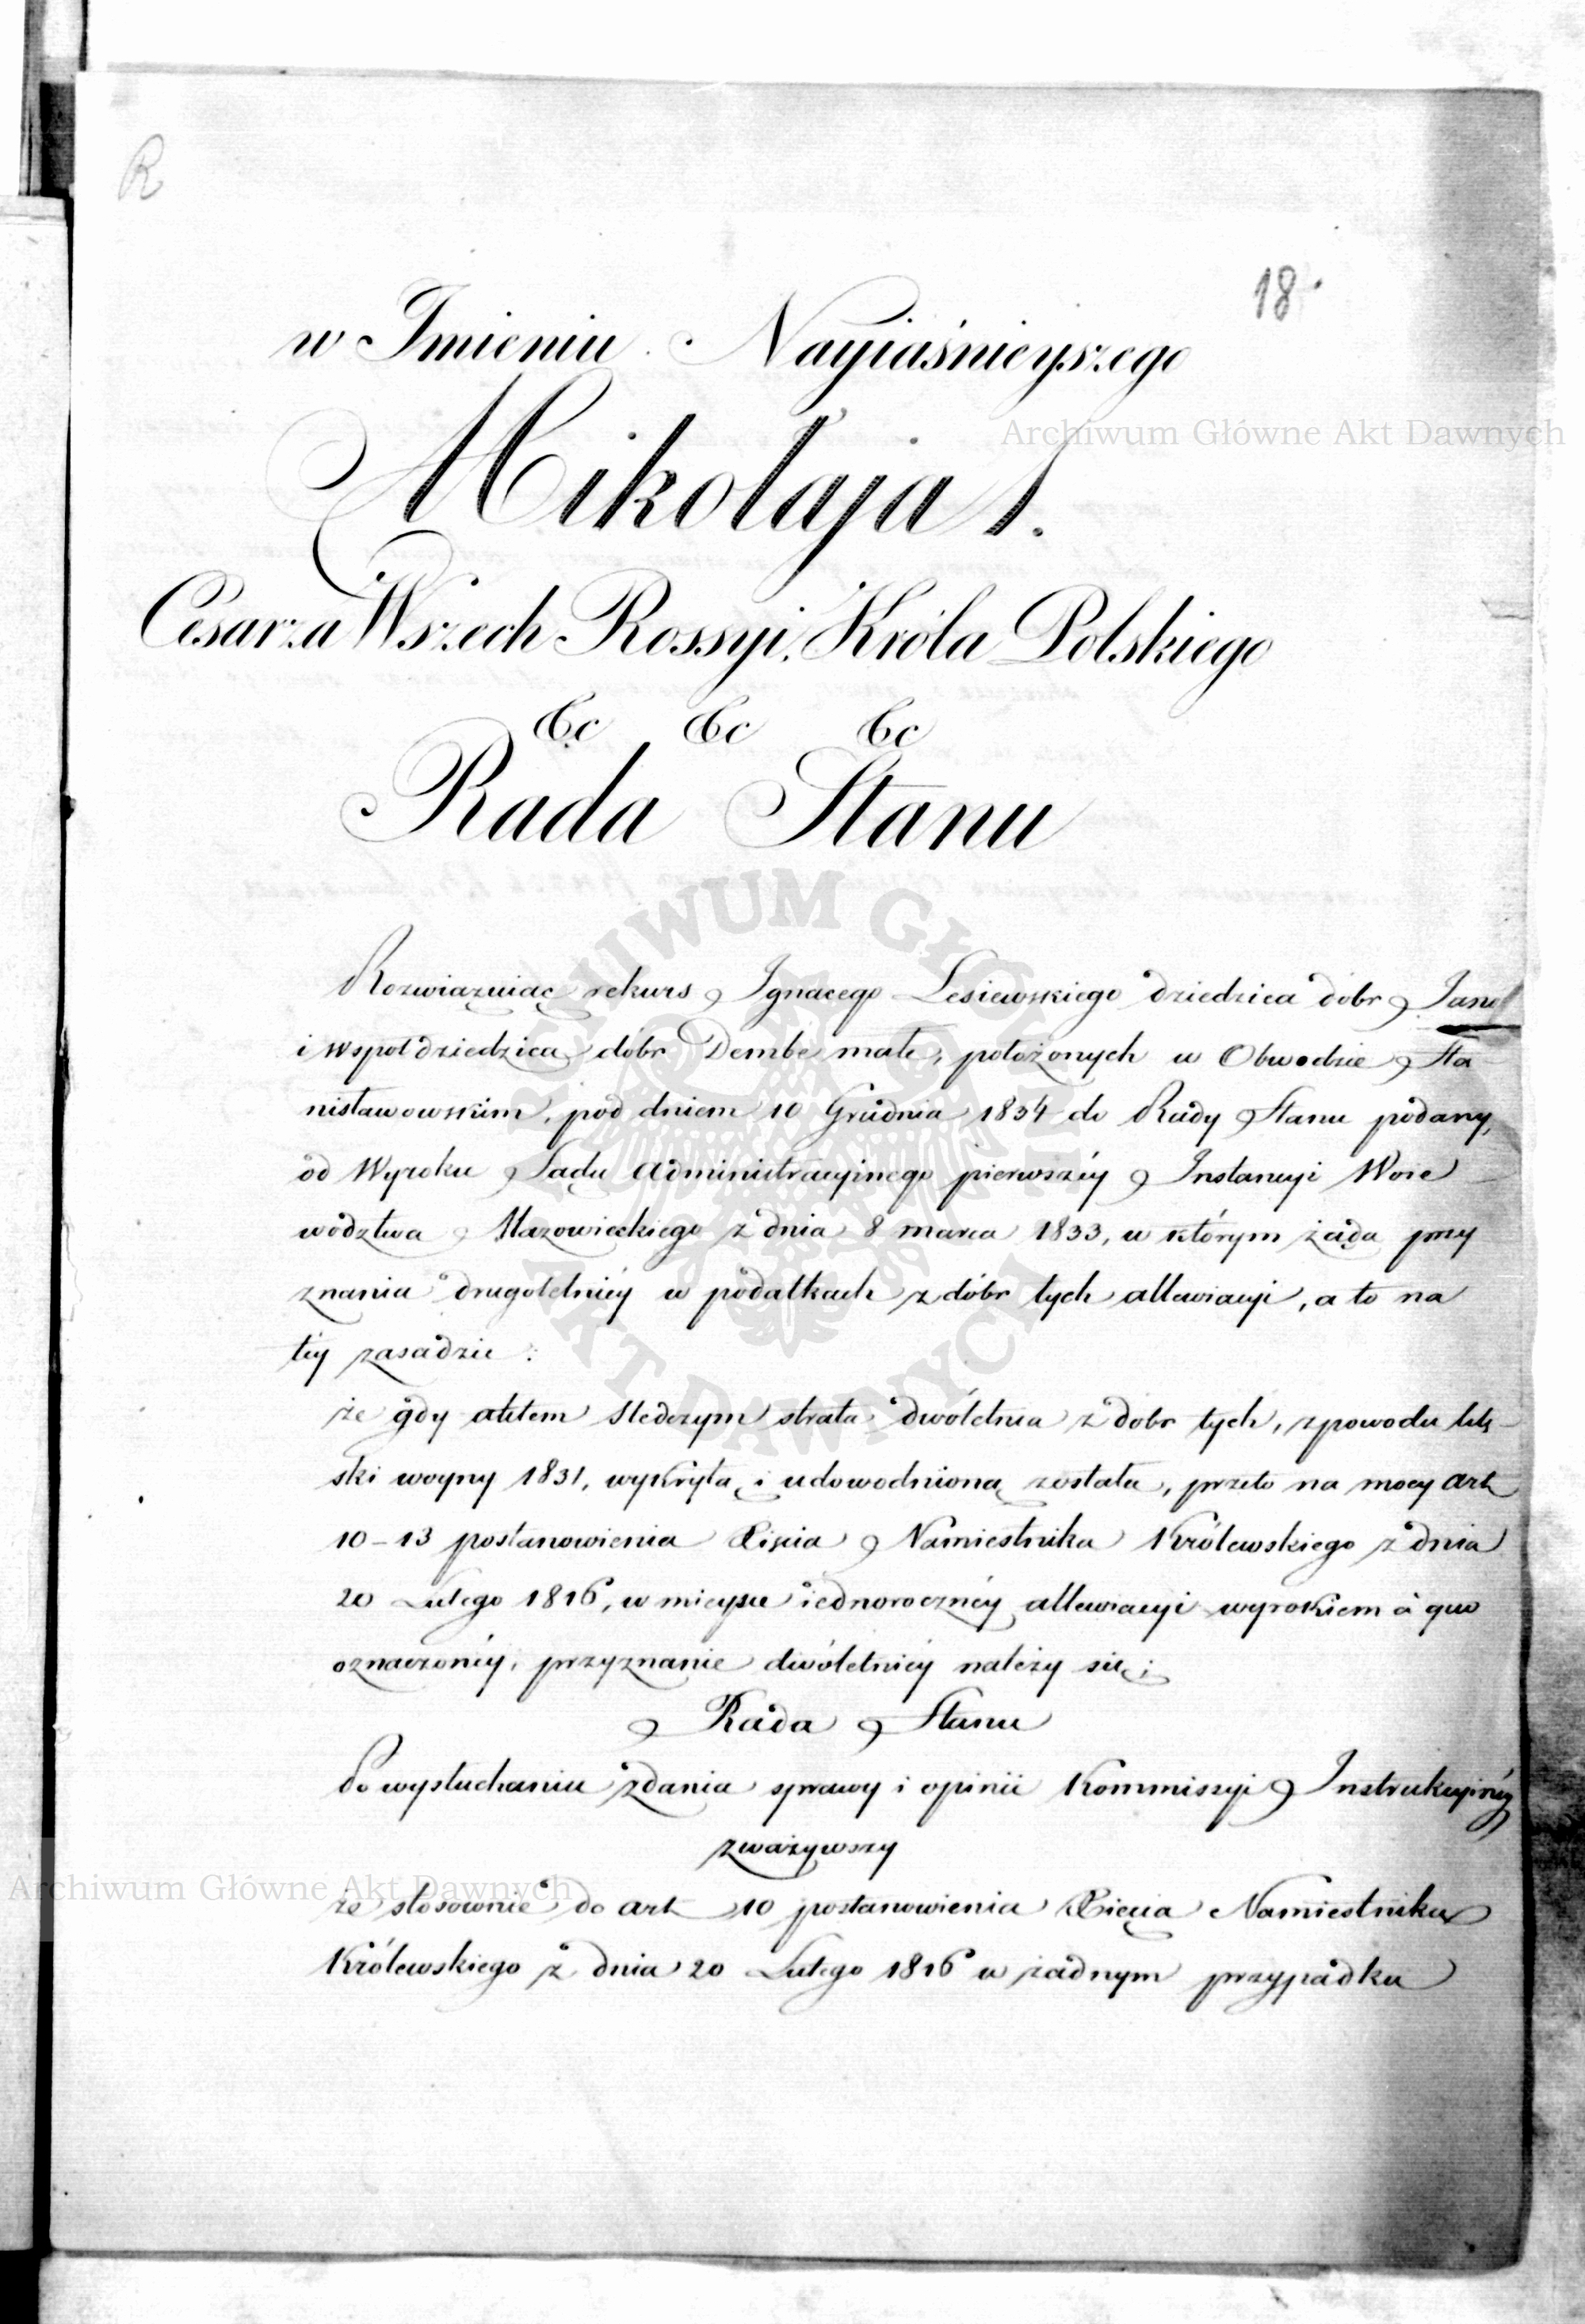 R
18.
w Imieniu Nayiaśnieyszego
Mikołaja I.
Cesarza Wszech Rossyi, Króla Polskiego
&c &c &c
Rada Stanu
Rozwiązuiąc rekurs Ignacego Lesiewskiego dziedzica dóbr
i wspołdziedzica dóbr Dembe małe, położonych w Obwodzie Sta
nisławowskim, pod dniem 10 Grudnia 1834 do Rady Stanu podany,
od Wyroku Sądu Administracyinego pierwszéy Instancyi Woie
wództwa Mazowieckiego z dnia 8 marca 1833, w którym żąda przy
znania drugoletniéy w podatkach z dóbr tych allewiacyi, a to na
téy zasadzie:
że gdy aktem śledczym strata dwóletnia z dobr tych, z powodu klę-
ski woyny 1831, wykrytą i udowodnioną została, przeto na mocy art
10-13 postanowienia Xięcia Namiestnika Królewskiego z dnia
20 Lutego 1816, w mieyscu iednorocznéy allewiacyi wyrokiem à quo
oznaczonéy, przyznanie dwóletniéy należy się;
Rada Stanu
Po wysłuchaniu zdania sprawy i opinii Kommissyi Instrukcyinéy
zważywszy
że stosownie do art 10 postanowienia Xięcia Namiestnika
Królewskiego z dnia 20 Lutego 1816 w żadnym przypadku
Archiwum Główne Akt Dawnych
Archiwum Główne Akt Dawnych
ARCHIWUM GŁÓWNE
AKT DAWNYCH